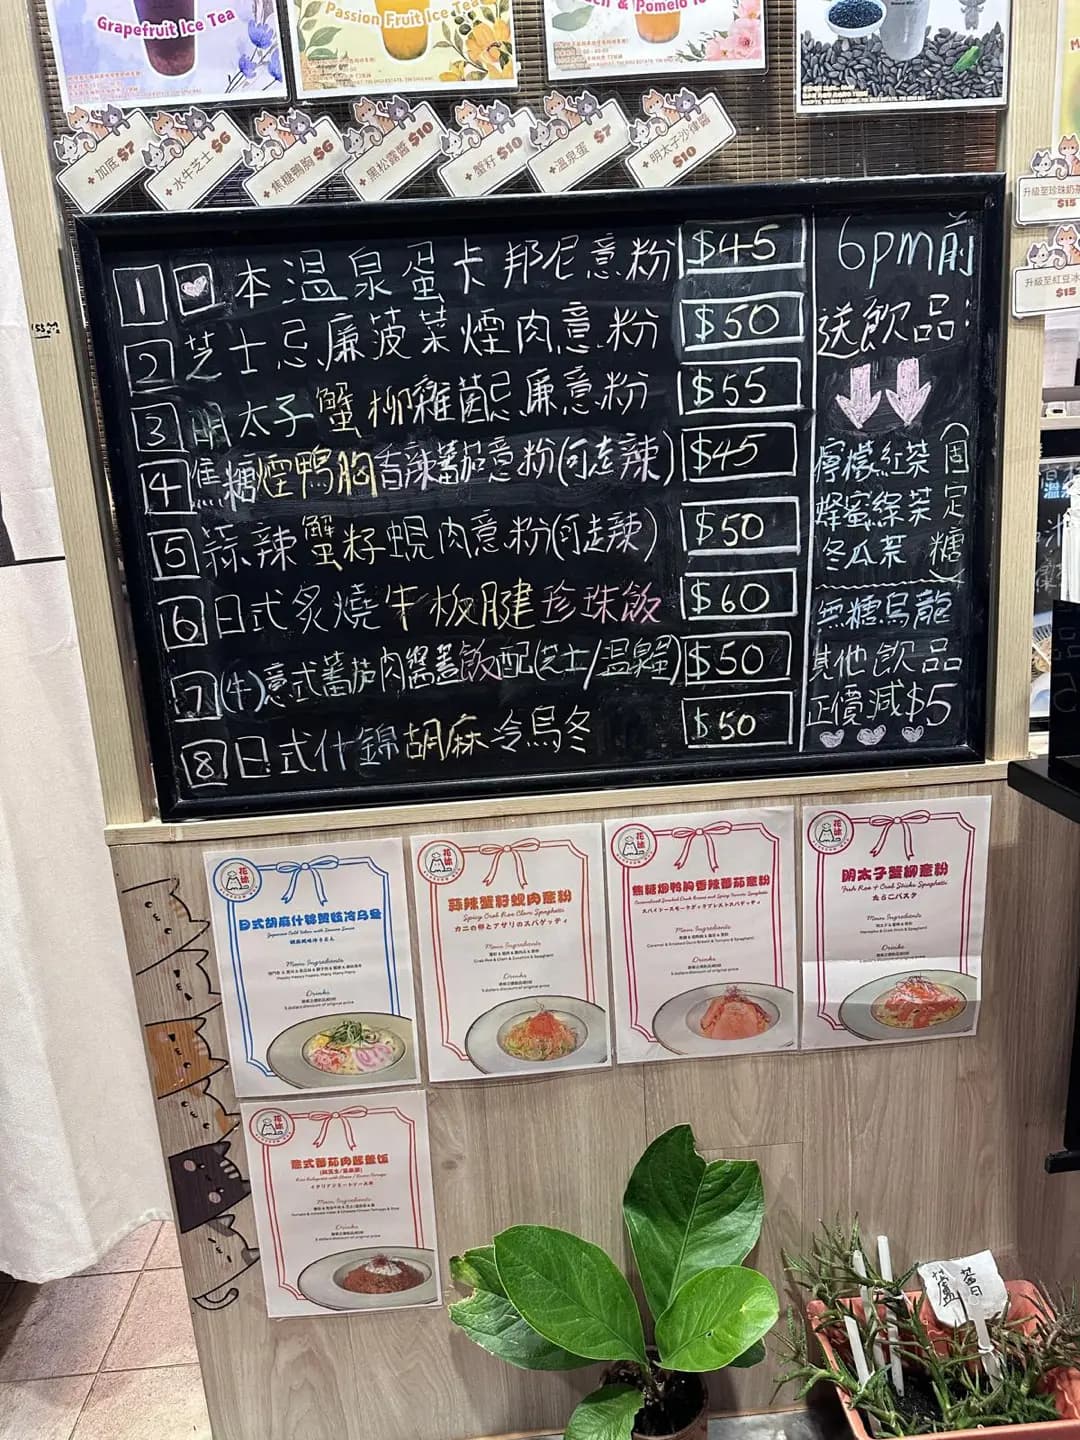 Grapefruit Ice Tea
Passion Fruit Ice Tea
& Pomelo
+ 加底 $7
+ 水牛芝士 $6
+ 焦糖鴨胸 $6
+ 黑松露醬 $10
+ 蟹籽 $10
+ 溫泉蛋 $7
+ 明太子沙律醬 $10
升級至珍珠奶茶
$15
升級至紅豆冰
$15
1 日本溫泉蛋卡邦尼意粉 $45
2 芝士忌廉菠菜煙肉意粉 $50
3 明太子蟹柳雜菌忌廉意粉 $55
4 焦糖煙鴨胸香辣蕃茄意粉(可走辣) $45
5 蒜辣蟹籽蜆肉意粉(可走辣) $50
6 日式炙燒牛板腱珍珠飯 $60
7 (牛)意式蕃茄肉醬蓋飯配(芝士/溫泉蛋) $50
8 日式什錦胡麻冷烏冬 $50
6pm前
送飲品:
檸檬紅茶
蜂蜜綠茶
冬瓜茶
(固定糖)
無糖烏龍
其他飲品
正價減$5
花沫
Japanese Cold Udon with Sesame Sauce
Main Ingredients
Drinks
5 dollars discount of original price
花沫
蒜辣蟹籽蜆肉意粉
Spicy Crab Roe Clam Spaghetti
カニの卵とアサリのスパゲッティ
Main Ingredients
Drinks
5 dollars discount of original price
花沫
焦糖烟鸭胸香辣蕃茄意粉
Caramelized Smoked Duck Breast and Spicy Tomato Spaghetti
Main Ingredients
Caramel & Smoked Duck Breast & Tomato & Spaghetti
Drinks
5 dollars discount of original price
花沫
明太子蟹柳意粉
Fish Roe + Crab Sticks Spaghetti
たらこパスタ
Main Ingredients
Drinks
5 dollars discount of original price
花沫
意式蕃茄肉酱盖饭
Main Ingredients
Drinks
5 dollars discount of original price